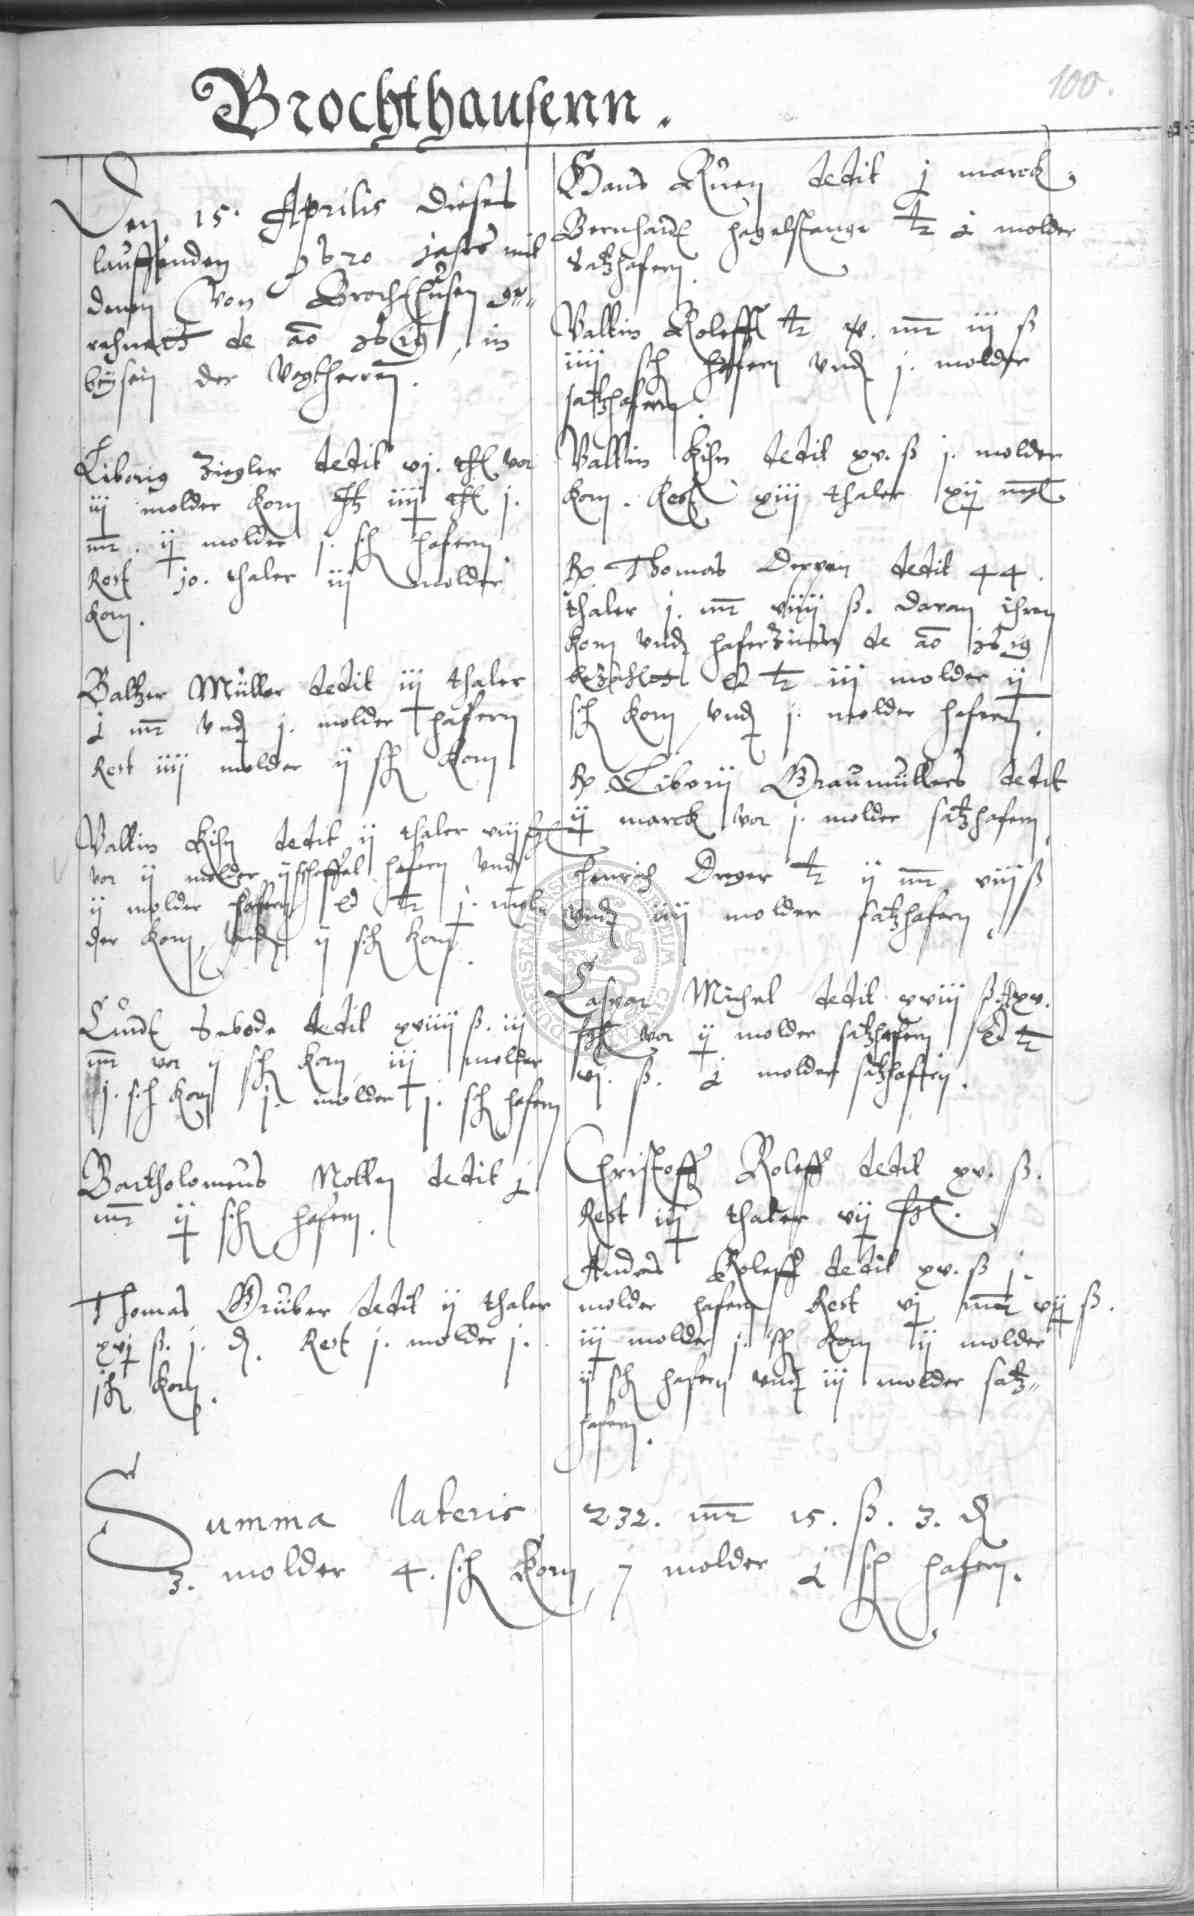 100.
Brochthausenn.
Den 15. Aprilis dieses
lauffenden 1620 jahrs mit
denen von Brochthusen ge=
rehnett de ao 1619, in
beysein der Vogtherren.
Liborig Ziegler dedit vj. thl vor
iij molder Korn It iiij thl j.
mr. ij molder j. sch hafern
Rest 10. thaler iij molder
Korn.
Baltzer Müller dedit iij thaler
mr vnd j. molder hafern
Rest iiij molder ij sch Korn
Valtin Kihn dedit ij thaler viij
vor ij molder ij scheffel hafern vnd
ij molder hafern j. mol
der Korn, vnd ij sch Korn.
Curdt Sebode dedit xviiij ß. iij
mr vor ij sch Korn iij molder
j. sch Korn j. molder j. sch hafern
Bartholomeus Nolten dedit
mr ij sch hafern.
Thomas Gruber dedit ij thaler
xvj ß. j. d. Rest j. molder j.
sch Korn.
Hans Kuen dedit j marck.
Bernhardt Hagelstange molder
Satzhafern
Valtin Roleff mr iij ß
iiij sch hafern vnd j. molder
satzhafern.
Valtin Kihn dedit xv. ß j. molder
Korn. Rest xiij thaler xij
R. Thomas dedit 44.
thaler j. mr viiij ß. daran ihren
Korn vnd haferzinsen de ao 1619
bezahlett iij molder ij
sch Korn vnd j. molder hafern.
R. Liborij Graumüllers dedit
ij marck vor j. molder satzhafern
Henrich Dreger ij mr viij ß
vnd iiij molder satzhafern.
Caspar Michel dedit xviij ß. xv.
vor ij molder satzhafern
vj. ß. molder satzhaffern.
Christoff Roleff dedit xv. ß.
Rest iij thaler vij
Andres Roleff dedit xv. ß j.
molder hafern Rest vj mr xij ß.
iij molder j. sch Korn ij molder
ij sch hafern vnd iij molder satz=
hafern.
Summa lateris 232. mr 15. ß. 3. d
3. molder 4. sch Korn, 7 molder sch hafern.